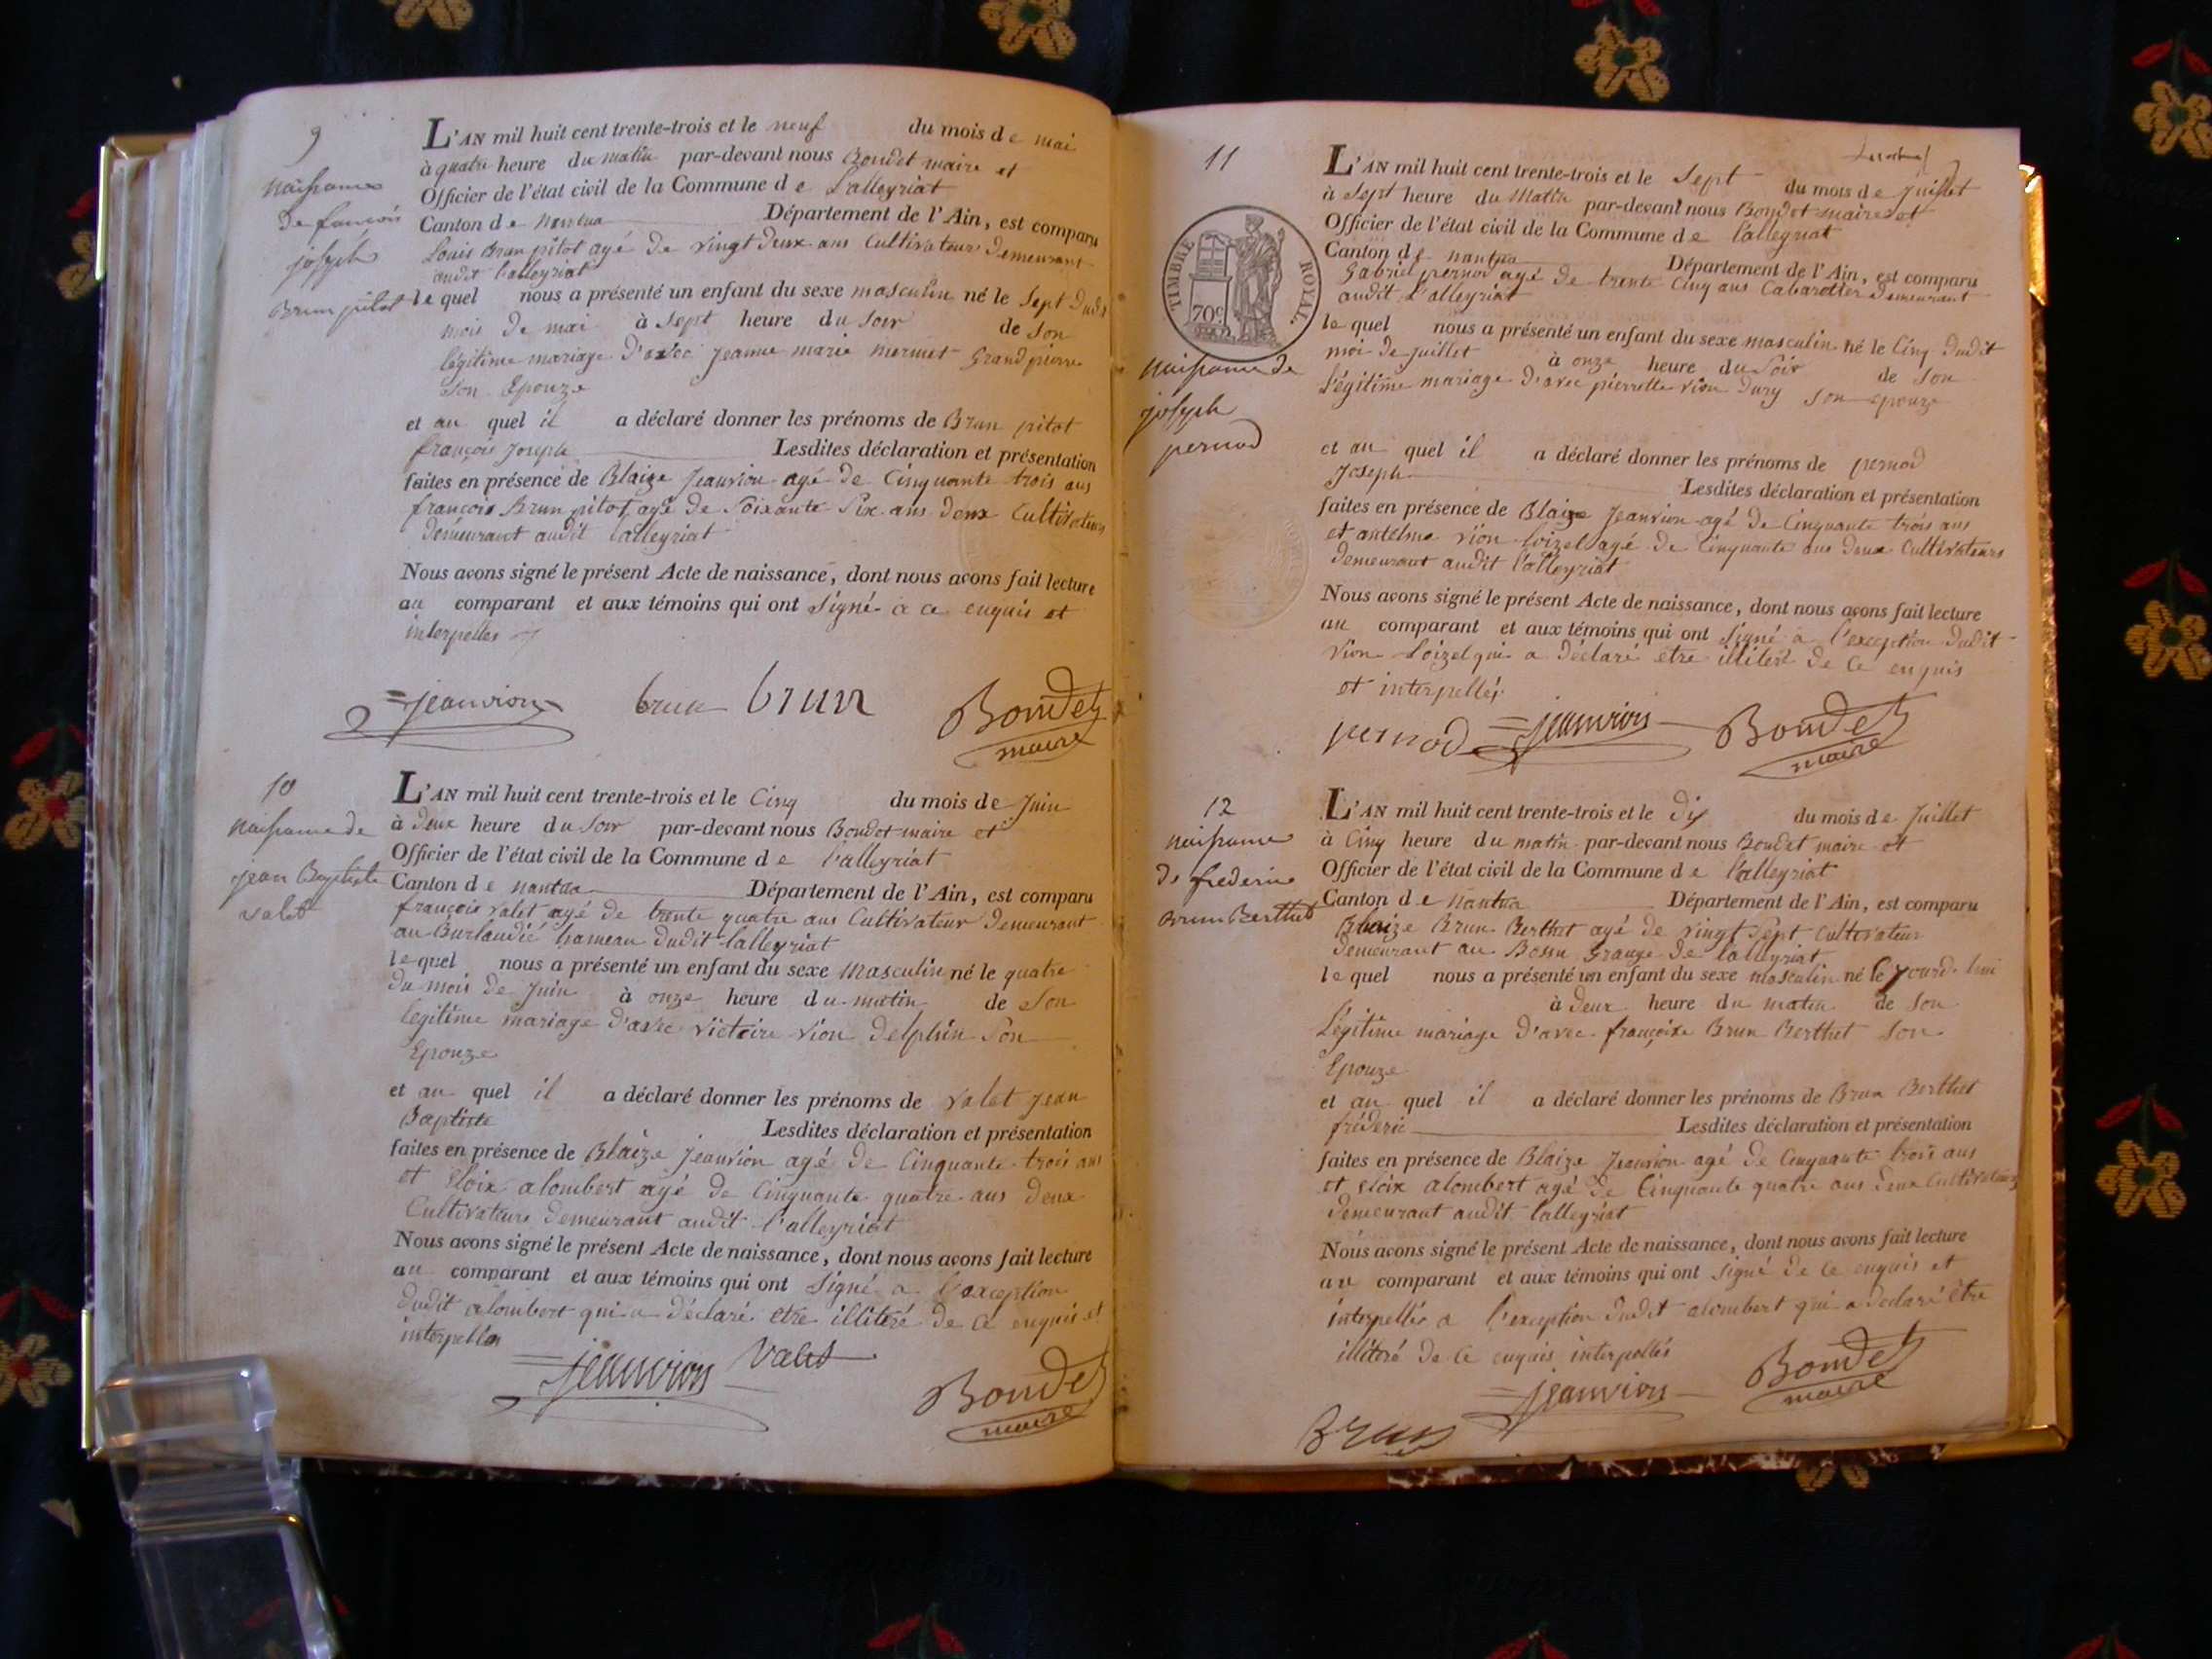 9
naissance
de françois
joseph
Brun pitot
L'AN mil huit cent trente-trois et le neuf du mois de mai
à quatre heure du matin par-devant nous Boudet maire et
Officier de l'état civil de la Commune de Lalleyriat
Canton de nantua Département de l'Ain, est comparu
Louis Brun pitot agé de vingt deux ans Cultivateur demeurant
audit Lalleyriat
lequel nous a présenté un enfant du sexe masculin né le sept dudit
mois de mai à sept heure du soir de son
légitime mariage d'avec jeanne marie mermet Grand pierre
son Epouze
et au quel il a déclaré donner les prénoms de Brun pitot
françois Joseph Lesdites déclaration et présentation
faites en présence de Blaize Jeanvion agé de Cinquante trois ans
françois Brun pitot agé de soixante six ans deux Cultivateurs
demeurant audit Lalleyriat
Nous avons signé le présent Acte de naissance, dont nous avons fait lecture
au comparant et aux témoins qui ont signé à ce enquis et
interpelles
jeanvion brun brun Boudet
maire
10
naissance de
jean Baptiste
valet
L'AN mil huit cent trente-trois et le Cinq du mois de Juin
à deux heure du soir par-devant nous Boudet maire et
Officier de l'état civil de la Commune de Lalleyriat
Canton de nantua Département de l'Ain, est comparu
françois valet agé de trente quatre ans Cultivateur demeurant
au Burlandié hameau dudit Lalleyriat
lequel nous a présenté un enfant du sexe Masculin né le quatre
du mois de Juin à onze heure du matin de son
legitime mariage d'avec victoire vion delphin son
Epouze
et au quel il a déclaré donner les prénoms de valet Jean
Baptiste Lesdites déclaration et présentation
faites en présence de Blaize Jeanvion agé de Cinquante trois ans
et Eloix alombert agé de Cinquante quatre ans deux
Cultivateurs demeurant audit Lalleyriat
Nous avons signé le présent Acte de naissance, dont nous avons fait lecture
au comparant et aux témoins qui ont signé a l'exception
dudit alombert qui a déclaré etre illiteré de ce enquis et
interpelles
jeanvion valet
Boudet
maire
11
TIMBRE ROYAL.
70c
naissance de
joseph
pernod
L'AN mil huit cent trente-trois et le sept du mois de Juillet
à sept heure du Matin par-devant nous Boudet maire et
Officier de l'état civil de la Commune de Lalleyriat
Canton de nantua Département de l'Ain, est comparu
Gabriel pernod agé de trente Cinq ans Cabaretier demeurant
audit Lalleyriat
lequel nous a présenté un enfant du sexe masculin né le Cinq dudit
moi de juillet à onze heure du soir de son
légitime mariage d'avec pierrette vion dury son epouze
et au quel il a déclaré donner les prénoms de pernod
Joseph Lesdites déclaration et présentation
faites en présence de Blaize Jeanvion agé de Cinquante trois ans
et antelme vion Loizel agé de Cinquante ans deux Cultivateurs
demeurant audit Lalleyriat
Nous avons signé le présent Acte de naissance, dont nous avons fait lecture
au comparant et aux témoins qui ont signé a l'exception dudit
vion Loizel qui a déclaré etre illiteré de ce enquis
et interpellés
pernod jeanvion Boudet
maire
12
naissance
de frederic
Brun Berthet
L'AN mil huit cent trente-trois et le dix du mois de Juillet
à Cinq heure du matin par-devant nous Boudet maire et
Officier de l'état civil de la Commune de Lalleyriat
Canton de Nantua Département de l'Ain, est comparu
Blaize Brun Berthet agé de vingt sept Cultivateur
demeurant au Bossu Grange de Lalleyriat
lequel nous a présenté un enfant du sexe masculin né le jourd. hui
à deux heure du matin de son
Légitime mariage d'avec françoise Brun Berthet son
Epouze
et au quel il a déclaré donner les prénoms de Brun Berthet
fréderic Lesdites déclaration et présentation
faites en présence de Blaize Jeanvion agé de Cinquante trois ans
et Eloix alombert agé de Cinquante quatre ans deux Cultivateurs
demeurant audit Lalleyriat
Nous avons signé le présent Acte de naissance, dont nous avons fait lecture
au comparant et aux témoins qui ont signé de ce enquis et
interpellés a l'exception dudit alombert qui a declaré être
illiteré de ce enquis interpellés
Boudet
maire
jeanvion
Brun